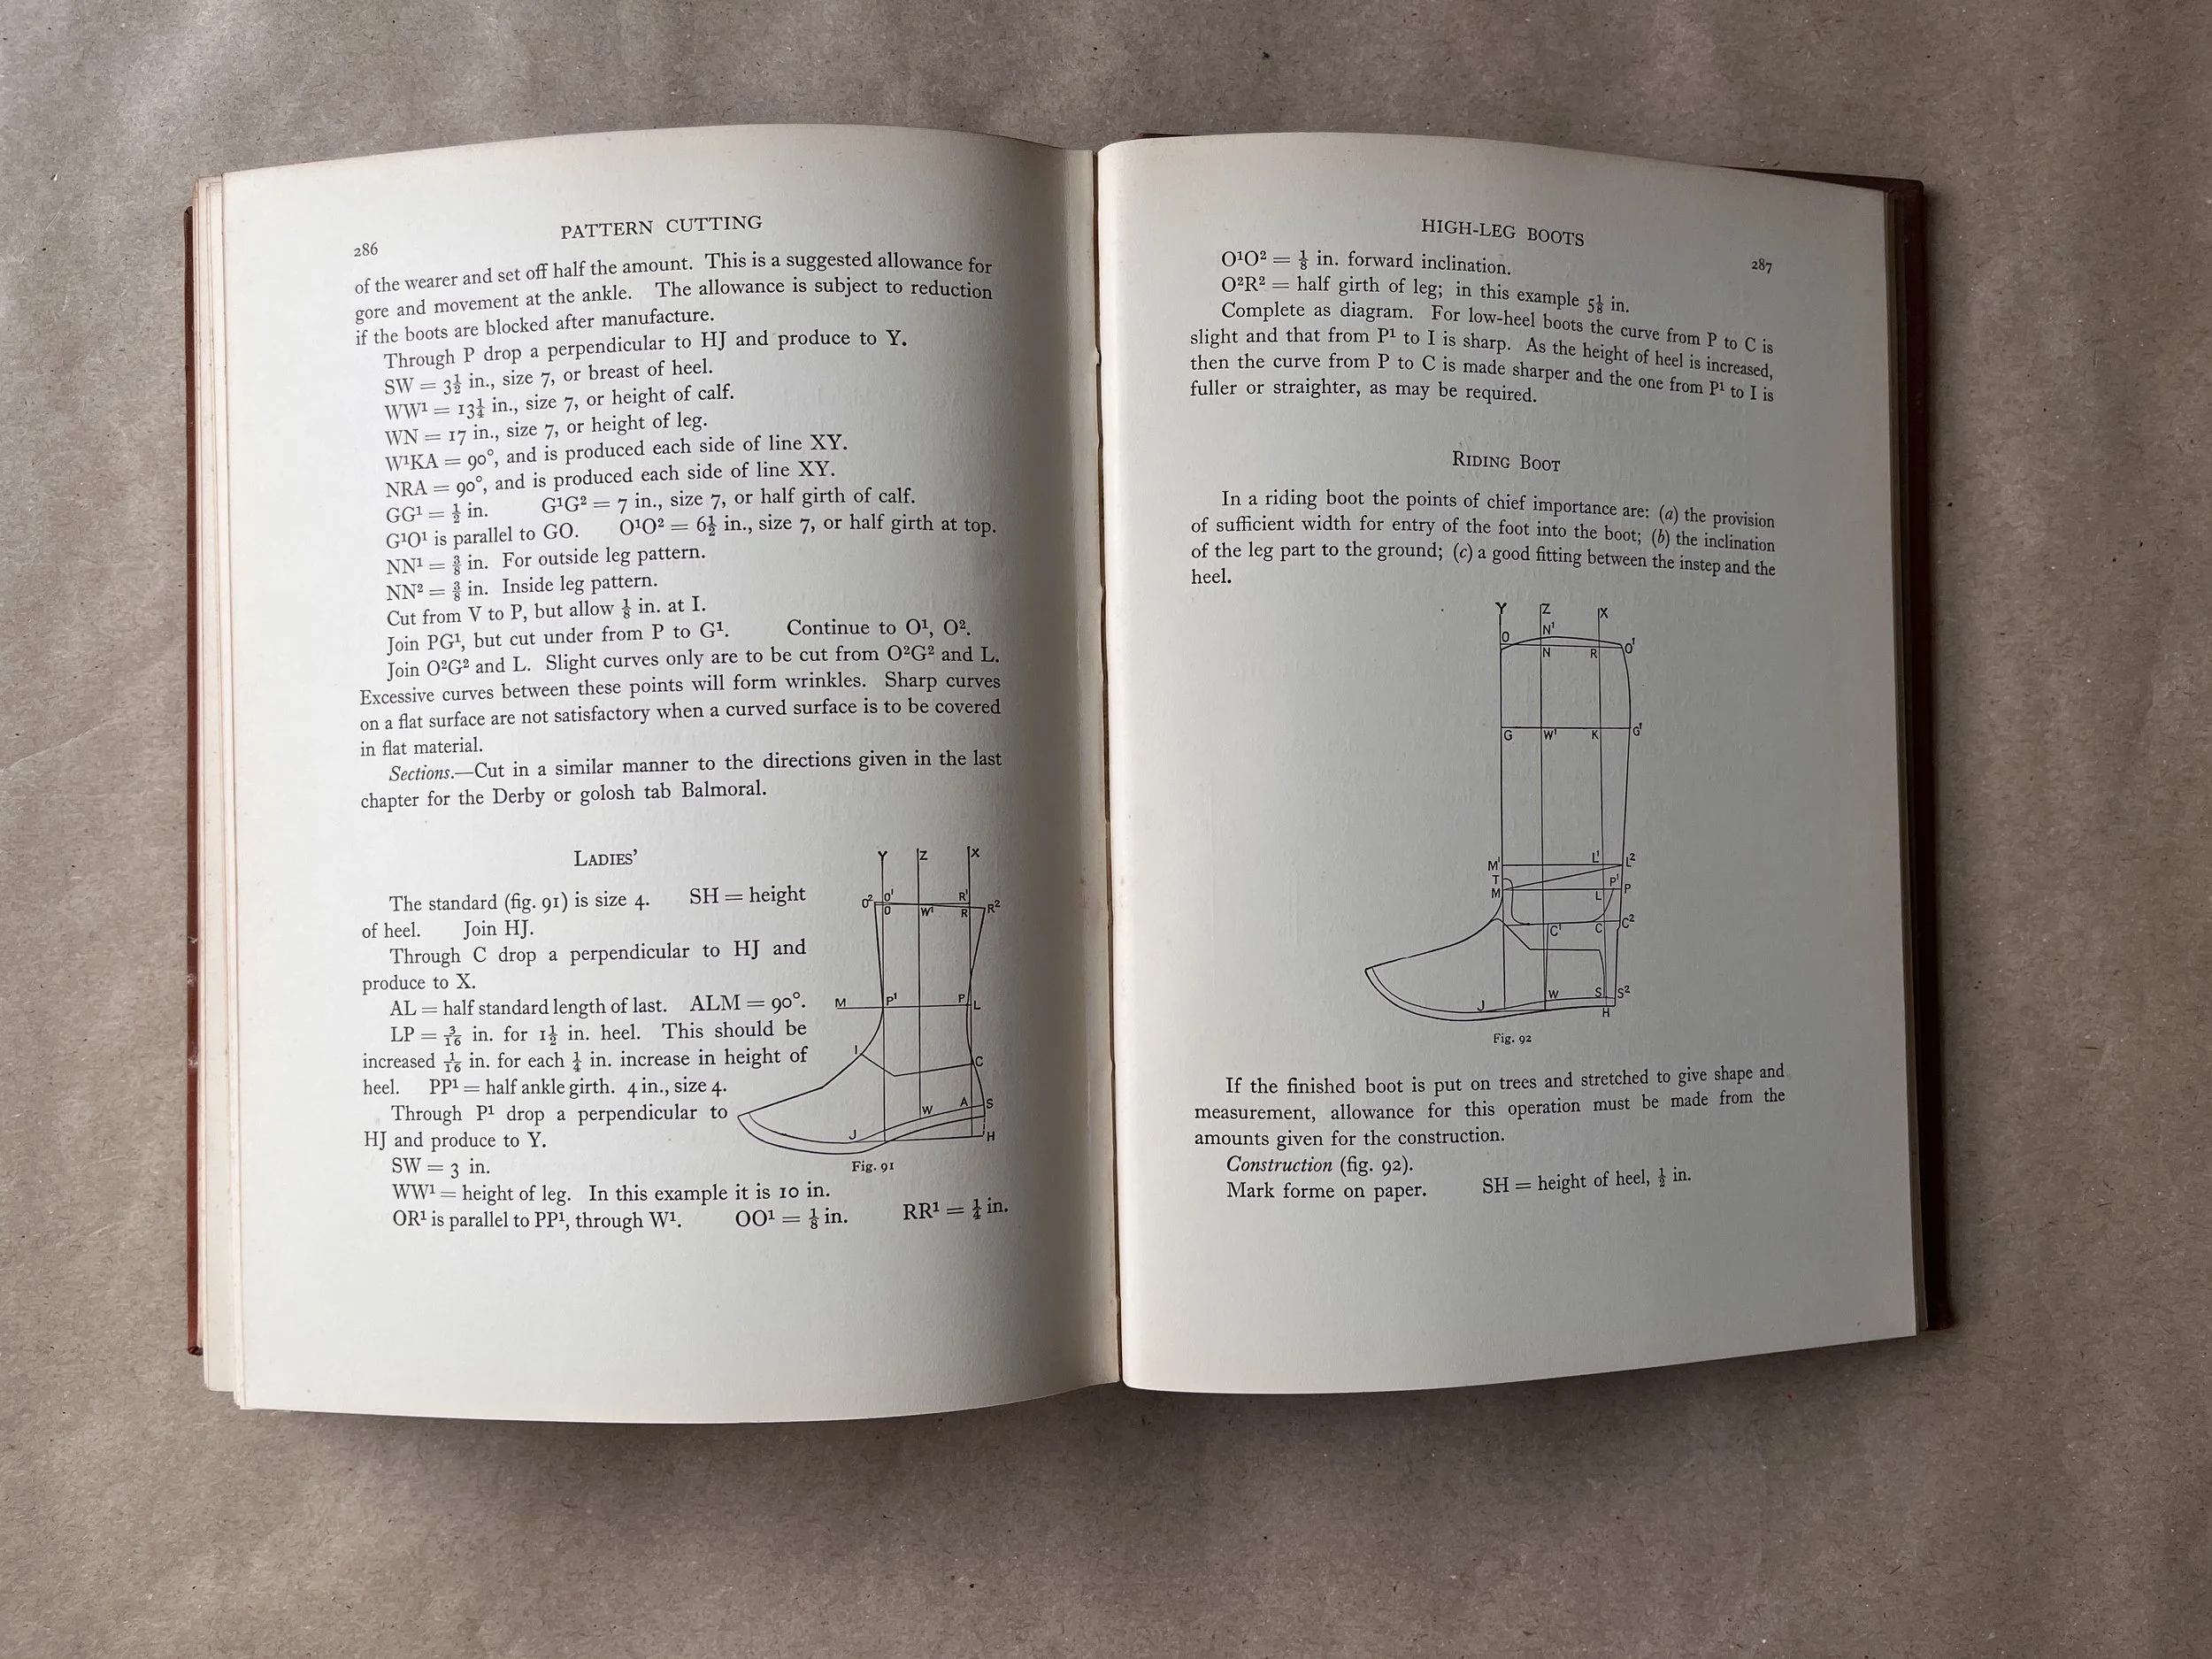 PATTERN CUTTING
286
of the wearer and set off half the amount. This is a suggested allowance for
gore and movement at the ankle. The allowance is subject to reduction
if the boots are blocked after manufacture.
Through P drop a perpendicular to HJ and produce to Y.
SW = 3½ in., size 7, or breast of heel.
WW¹ = 13¼ in., size 7, or height of calf.
WN = 17 in., size 7, or height of leg.
W¹KA = 90°, and is produced each side of line XY.
NRA = 90°, and is produced each side of line XY.
GG¹ = ½ in. G¹G² = 7 in., size 7, or half girth of calf.
G¹O¹ is parallel to GO. O¹O² = 6½ in., size 7, or half girth at top.
NN¹ = ⅜ in. For outside leg pattern.
NN² = ⅜ in. Inside leg pattern.
Cut from V to P, but allow ⅛ in. at I.
Join PG¹, but cut under from P to G¹. Continue to O¹, O².
Join O²G² and L. Slight curves only are to be cut from O²G² and L.
Excessive curves between these points will form wrinkles. Sharp curves
on a flat surface are not satisfactory when a curved surface is to be covered
in flat material.
Sections.—Cut in a similar manner to the directions given in the last
chapter for the Derby or golosh tab Balmoral.
LADIES'
The standard (fig. 91) is size 4. SH = height
of heel. Join HJ.
Through C drop a perpendicular to HJ and
produce to X.
AL = half standard length of last. ALM = 90°.
LP = 3/16 in. for 1½ in. heel. This should be
increased 1/16 in. for each ¼ in. increase in height of
heel. PP¹ = half ankle girth. 4 in., size 4.
Through P¹ drop a perpendicular to
HJ and produce to Y.
SW = 3 in.
WW¹ = height of leg. In this example it is 10 in.
OR¹ is parallel to PP¹, through W¹. OO¹ = ⅛ in. RR¹ = ¼ in.
Y Z X
O² O¹ R¹
O W¹ R R²
M P¹ P L
I C
W A S
J H
Fig. 91
HIGH-LEG BOOTS
287
O¹O² = ⅛ in. forward inclination.
O²R² = half girth of leg; in this example 5⅛ in.
Complete as diagram. For low-heel boots the curve from P to C is
slight and that from P¹ to I is sharp. As the height of heel is increased,
then the curve from P to C is made sharper and the one from P¹ to I is
fuller or straighter, as may be required.
RIDING BOOT
In a riding boot the points of chief importance are: (a) the provision
of sufficient width for entry of the foot into the boot; (b) the inclination
of the leg part to the ground; (c) a good fitting between the instep and the
heel.
Y Z X
O N¹
N R O¹
G W¹ K G¹
M¹ L¹ L²
T P¹
M L P
C¹ C C²
J W S S²
H
Fig. 92
If the finished boot is put on trees and stretched to give shape and
measurement, allowance for this operation must be made from the
amounts given for the construction.
Construction (fig. 92).
Mark forme on paper. SH = height of heel, ½ in.